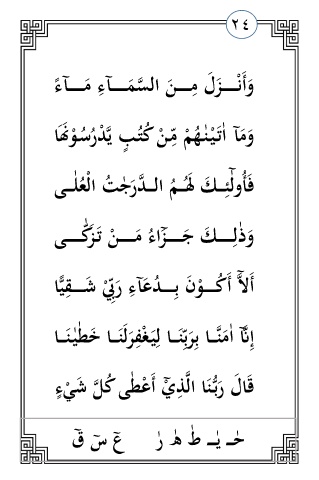 ٢٤
وَأَنْـزَلَ مِـنَ السَّمَـآءِ مَـآءً
وَمَآ اٰتَيْنٰهُمْ مِّنْ كُتُبٍ يَّدْرُسُوْنَهَا
فَأُولٰٓئِـكَ لَهُـمُ الـدَّرَجٰتُ الْعُلٰـى
وَذٰلِـكَ جَـزٰٓاءُ مَـنْ تَزَكّٰـى
أَلَّآ أَكُـوْنَ بِـدُعَآءِ رَبِّيْ شَـقِيًّا
إِنَّآ اٰمَنَّـا بِرَبِّنَـا لِيَغْفِرَلَنَـا خَطٰيٰنَـا
قَالَ رَبُّنَا الَّذِيْٓ أَعْطٰى كُلَّ شَيْءٍ
حٰـ يٰـ طٰ هٰ رٰ عٓ سٓ قٓ